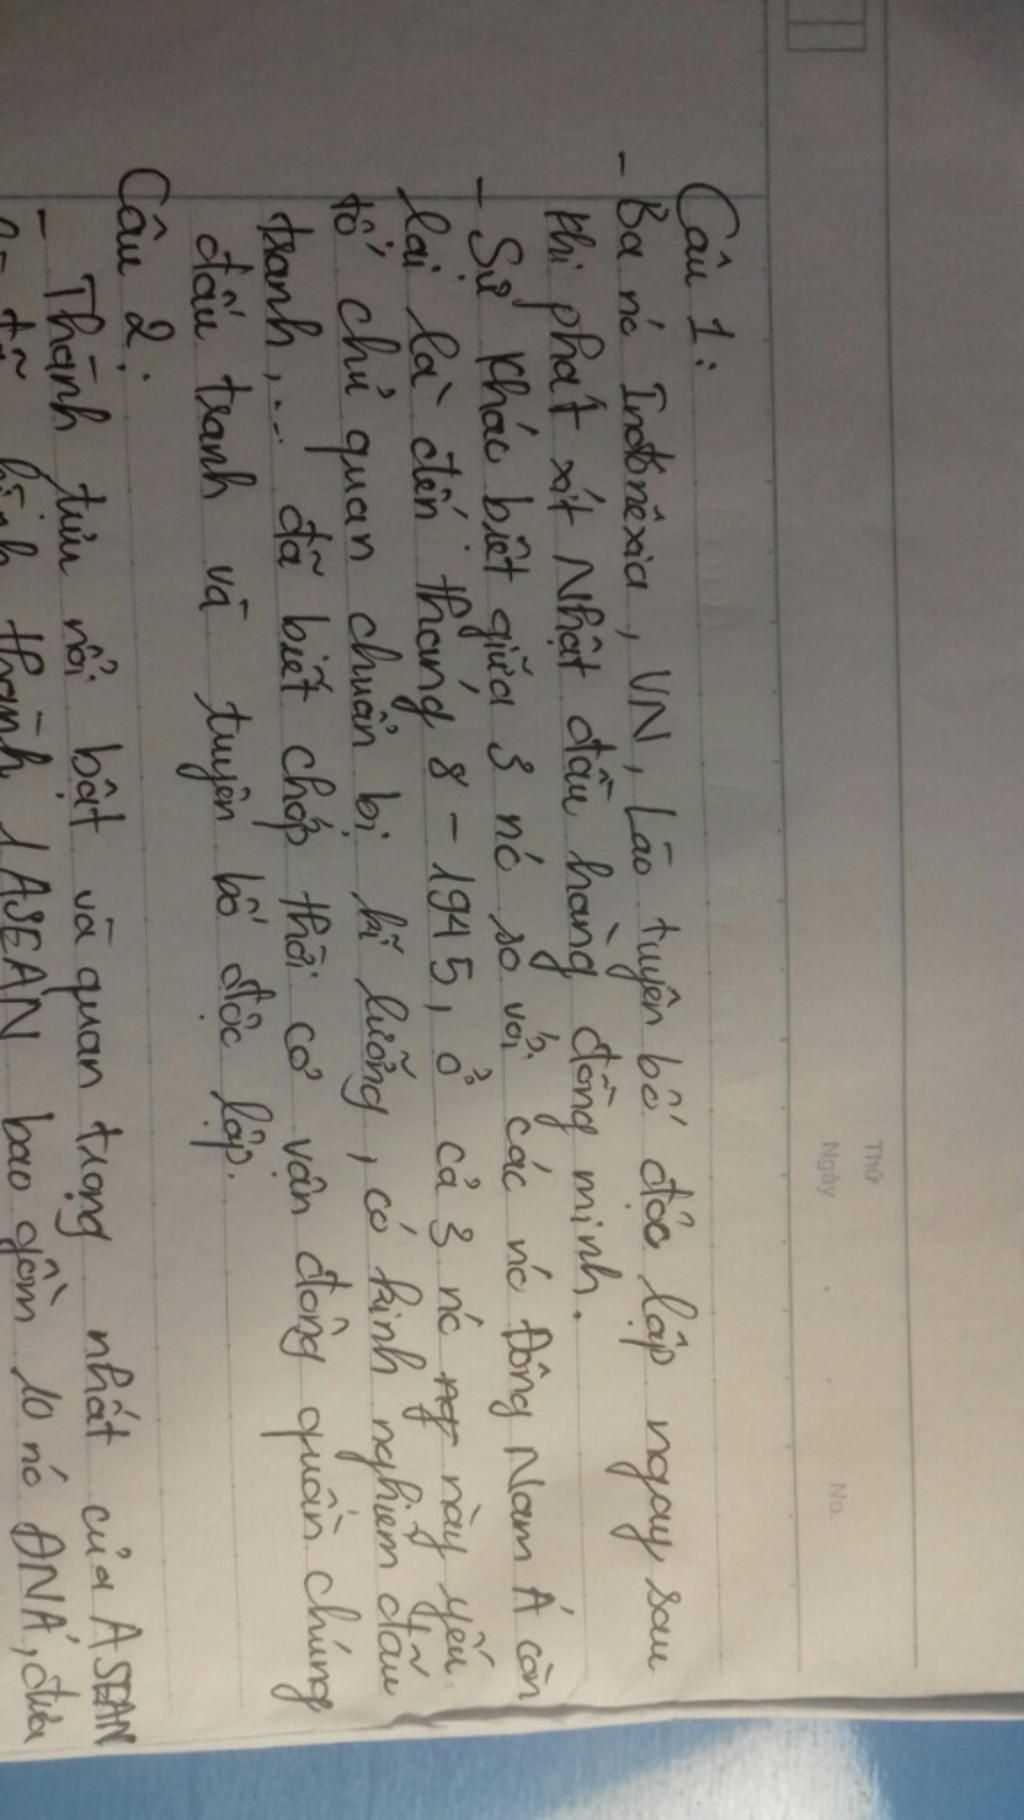 Thứ
Ngày
No.
Câu 1:
- Ba nc Inđônêxia, VN, Lào tuyên bố độc lập ngay sau
khi phát xít Nhật đầu hàng đồng minh.
- Sự khác biệt giữa 3 nc so với các nc Đông Nam Á còn
lại là đến tháng 8 - 1945, ở cả 3 nc này yếu
tố chủ quan chuẩn bị kĩ lưỡng, có kinh nghiệm đấu
tranh,... đã biết chớp thời cơ vận động quần chúng
đấu tranh và tuyên bố độc lập.
Câu 2:
- Thành tựu nổi bật và quan trọng nhất của ASEAN
hình thành 1 ASEAN bao gồm 10 nc ĐNÁ, đưa